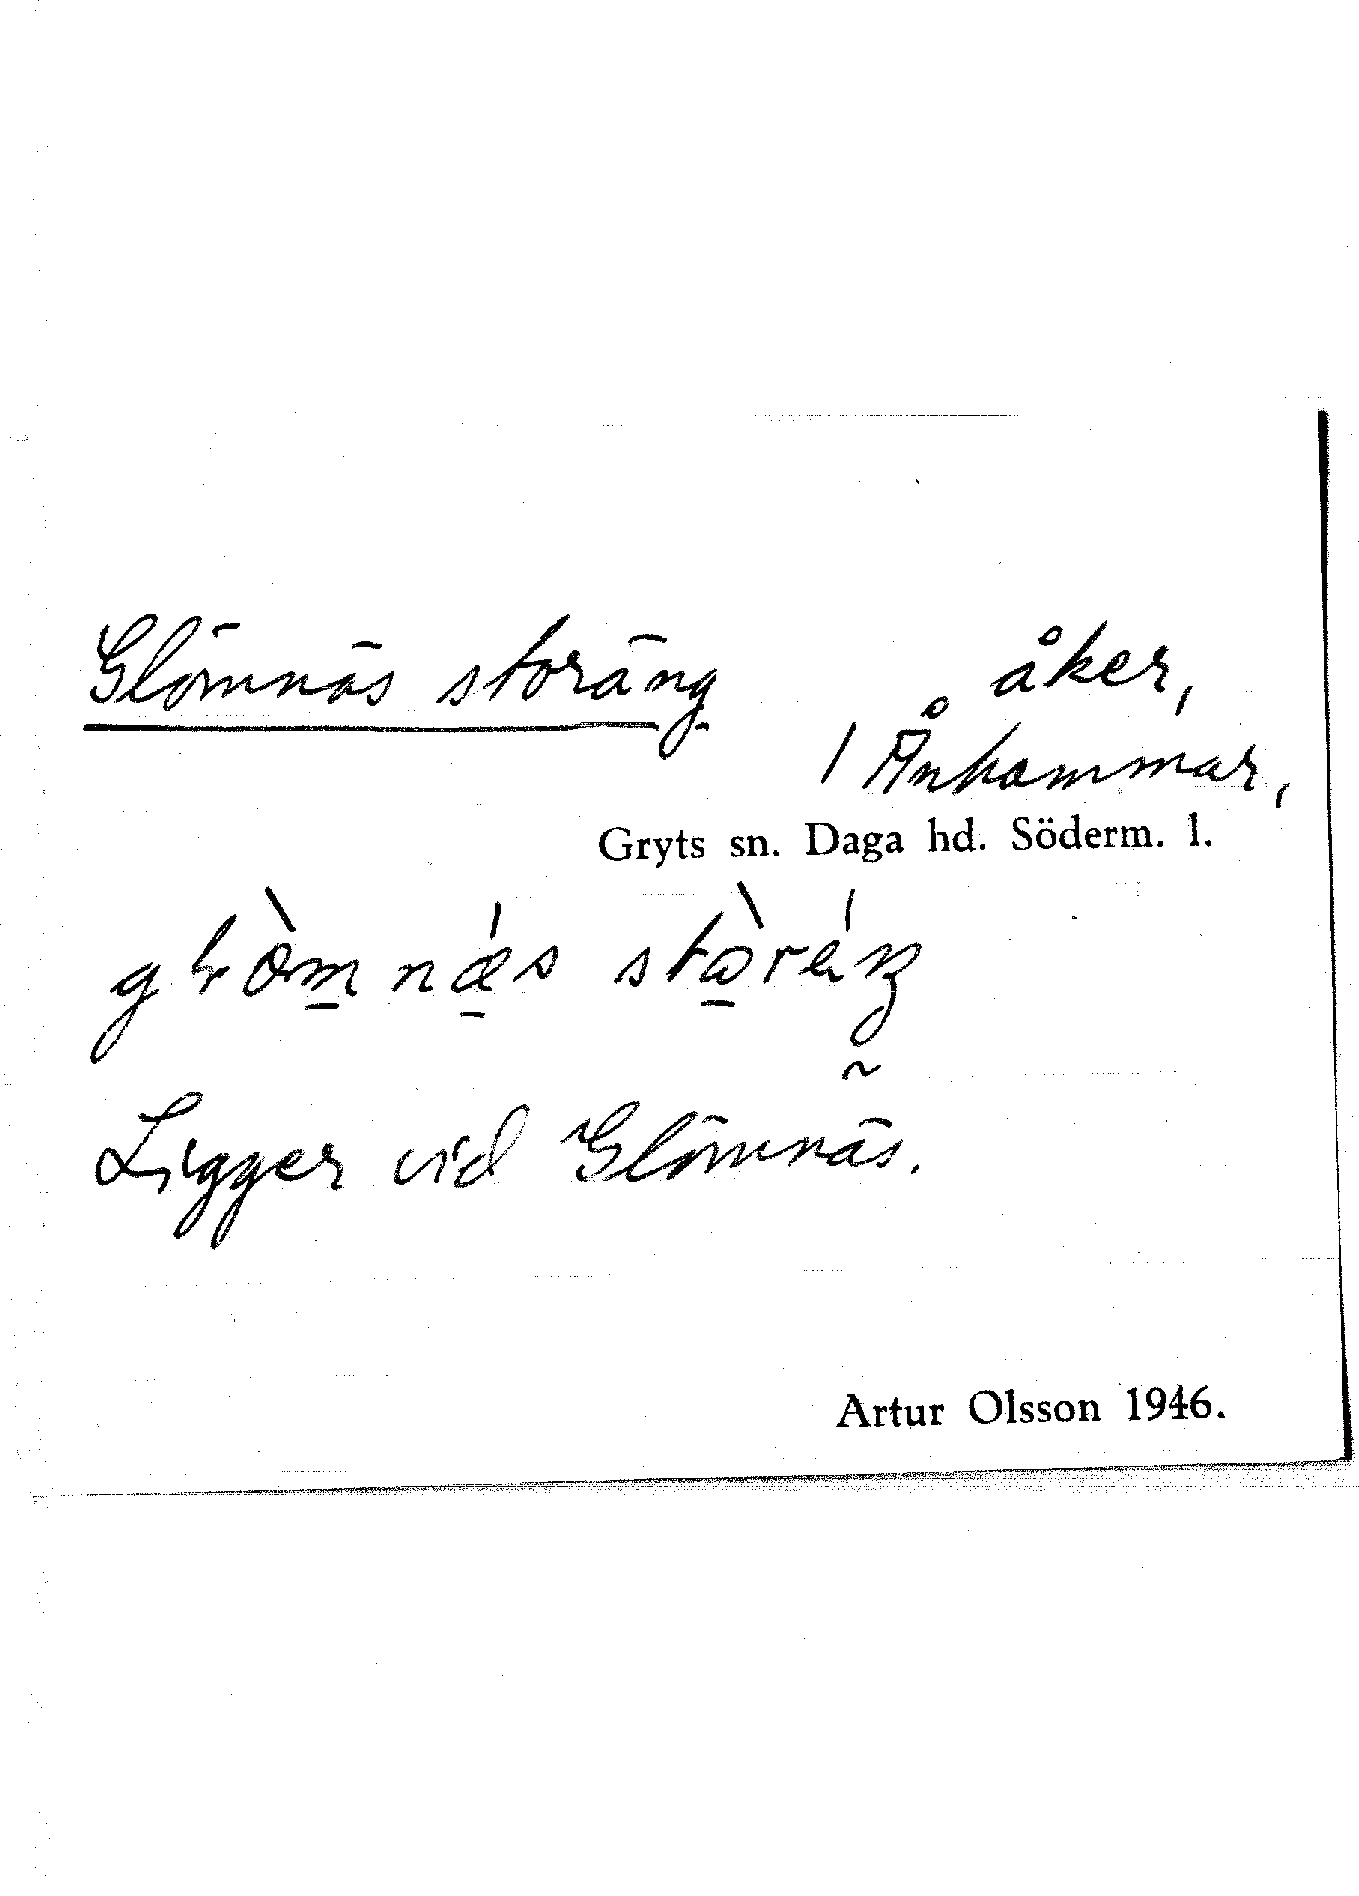 Glömnäs storäng åker,
1 Ånhammar,
Gryts sn. Daga hd. Söderm. l.
Ligger vid Glömnäs.
Artur Olsson 1946.